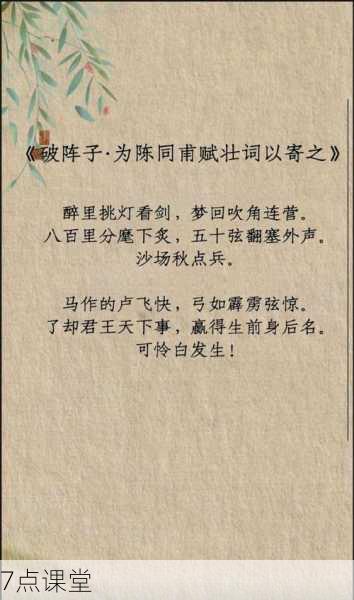 《破阵子·为陈同甫赋壮词以寄之》
醉里挑灯看剑，梦回吹角连营。
八百里分麾下炙，五十弦翻塞外声。
沙场秋点兵。
马作的卢飞快，弓如霹雳弦惊。
了却君王天下事，赢得生前身后名。
可怜白发生！
7点课堂